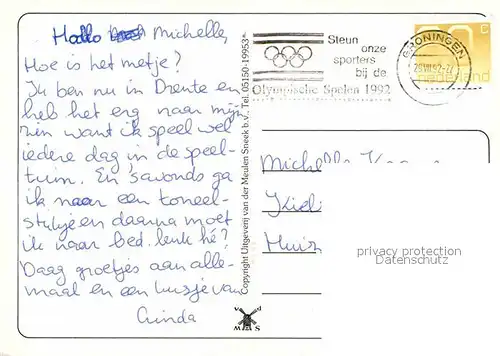 Hallo Michelle,
Hoe is het metje?
Ik ben nu in Drente en
heb het erg naar mijn
zin want ik speel wel
iedere dag in de speel-
tuin. En 's avonds ga
ik naar een toneel-
stukje en daarna moet
ik naar bed. leuk hé?
Daag groetjes aan alle-
maal en een kusje van
Linda
Copyright Uitgeverij van der Meulen Sneek b.v., Tel. 05150-19953*
Steun
onze
sporters
bij de
Olympische Spelen 1992
GRONINGEN
nederland
Michelle
privacy protection
Datenschutz